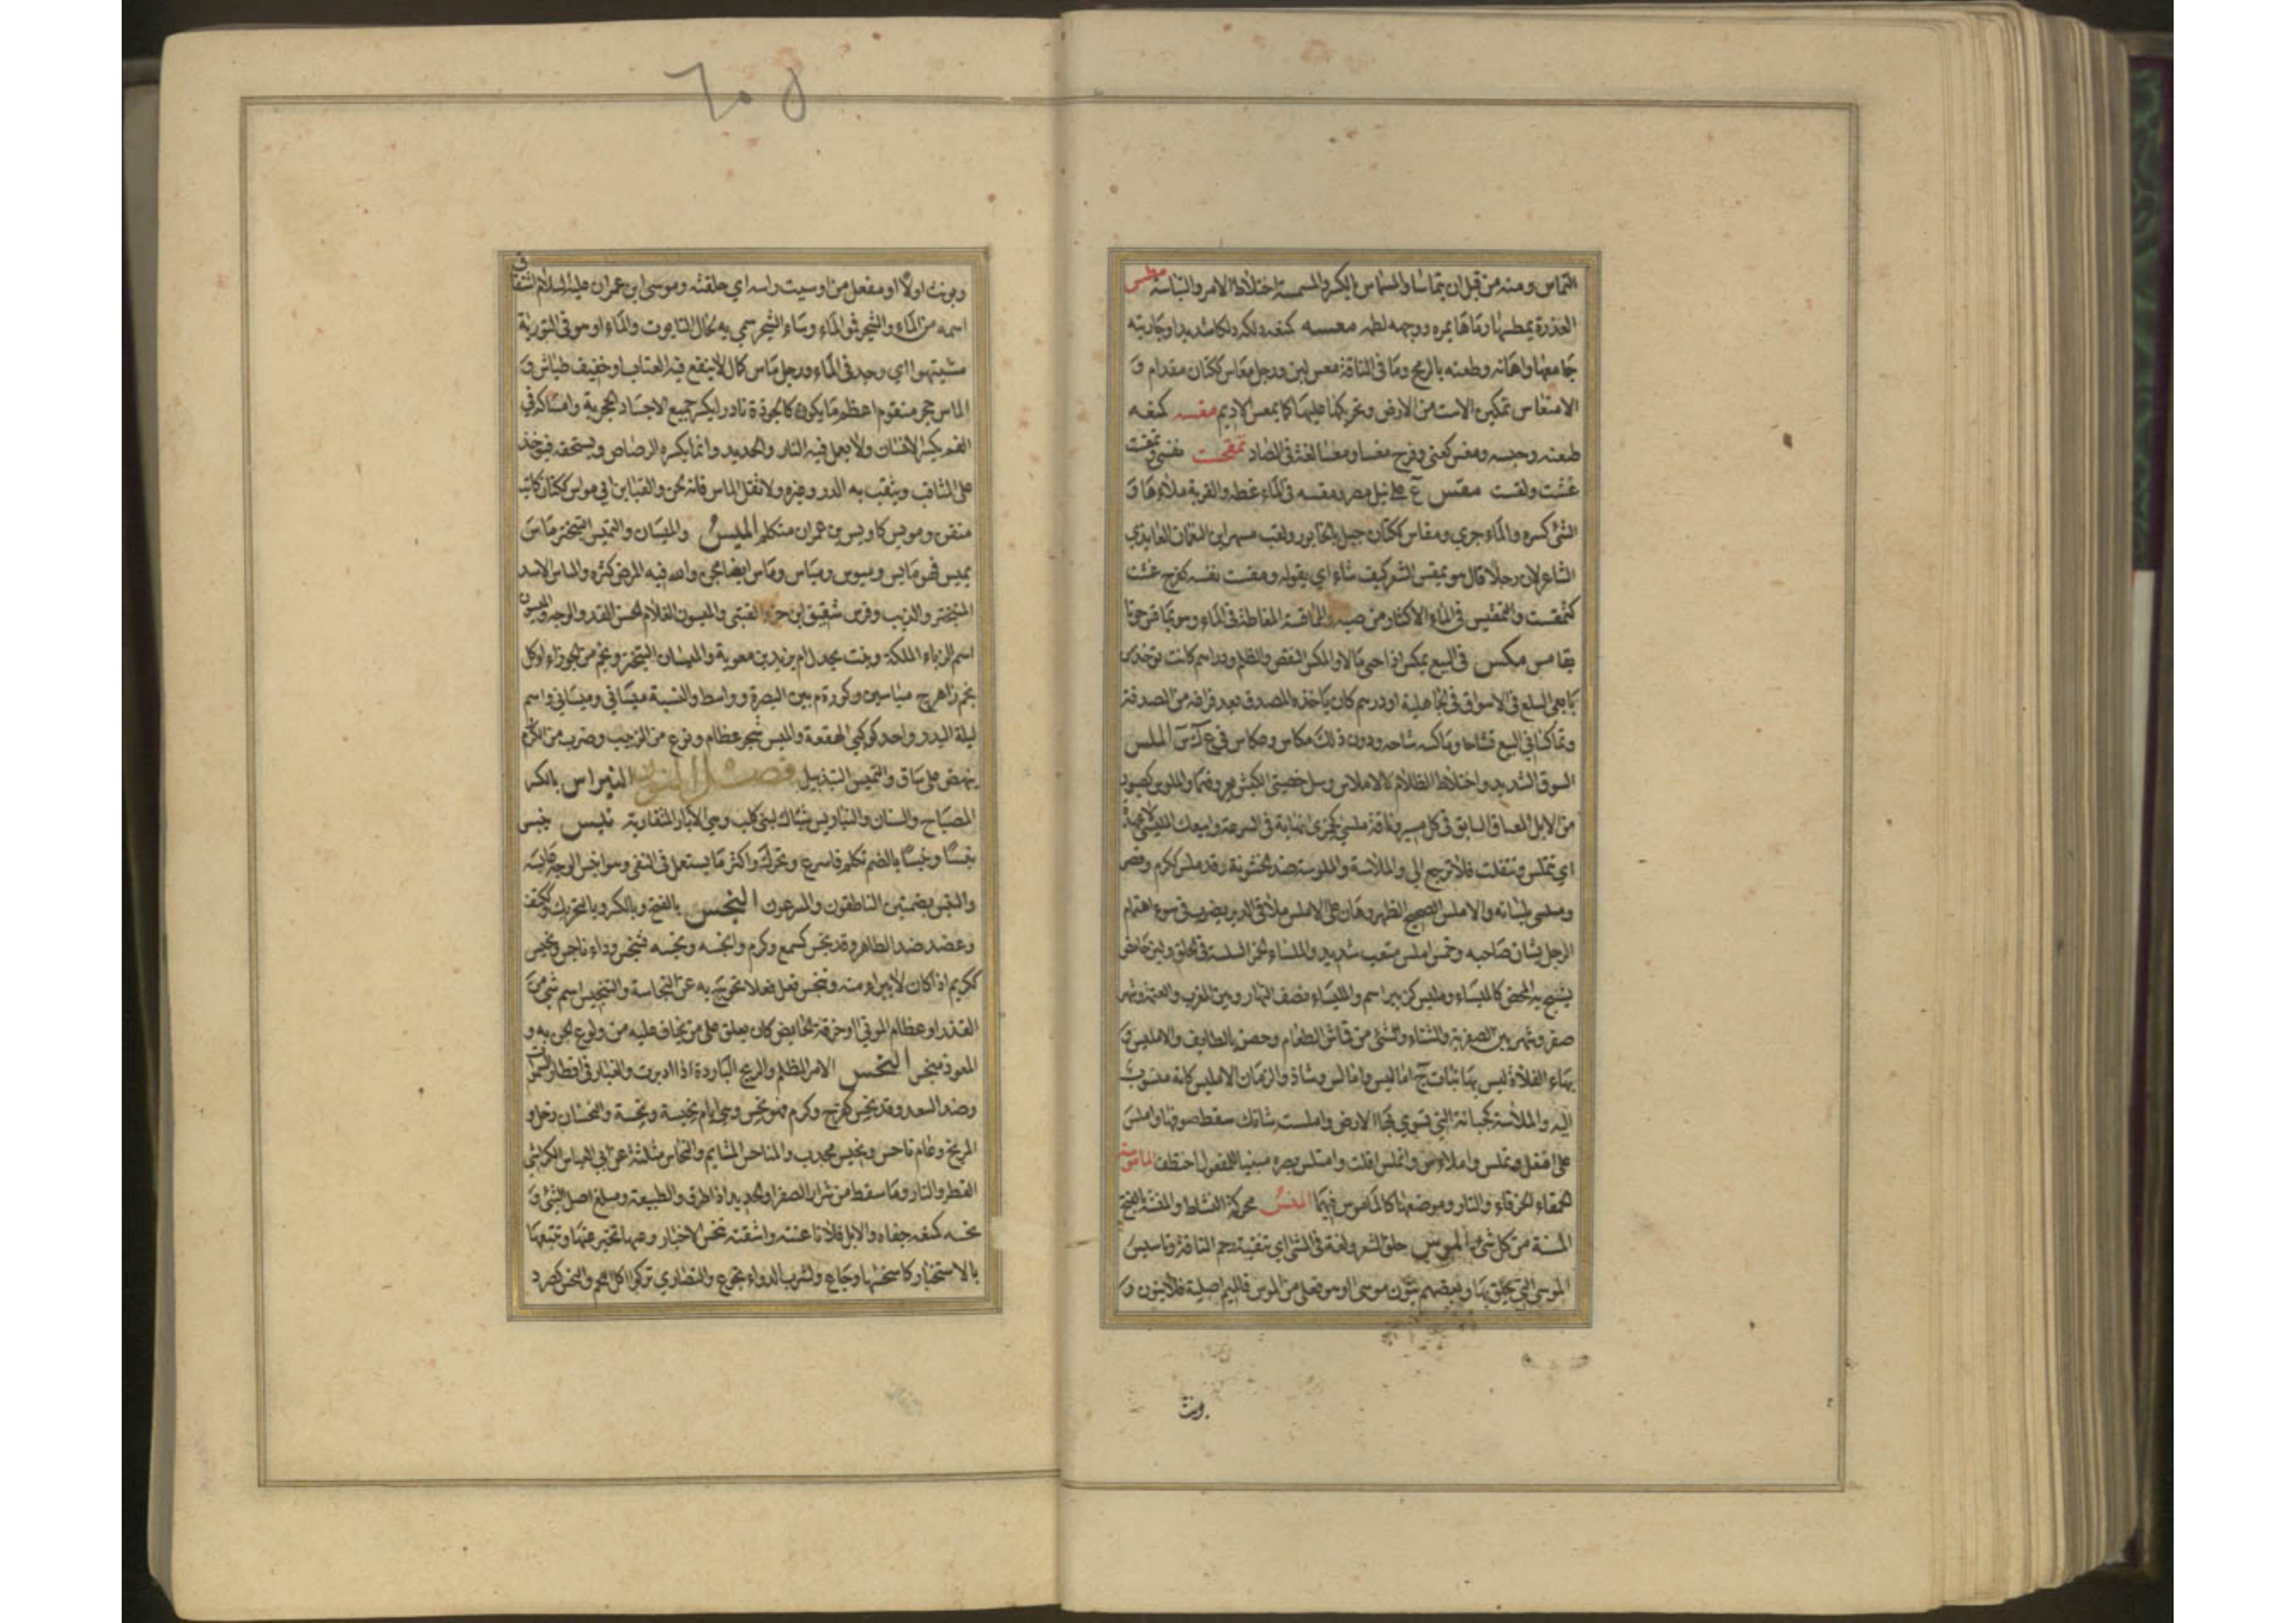 التماس ومنه من قبل ان يتماسا والمسماس بالكسر والمسمسة اختلاط الامر والتباسه مطس
العذرة يمطسها رماها بمره ووجهه لطمه معسه كمنعه دلكه دلكا شديدا وجاريته
جامعها واهانه وطعنه بالرمح وما فى الناقة معس لبن ورجل معاس ككتان مقدام و
الامتعاس تمكين الاست من الارض وتحريكها عليها كما يمعس الاديم مغسه كمنعه
طعنه وجسه ومغس كعنى وفرح مغسا ومغسا لغة فى الصاد تمقحت نفسى وتمقست
غثت ولقست مقس ع على نيل مصر ومقسه فى الماء غطه والقربة ملأها و
الشئ كسره والماء جرى ومقاس ككتان جبل بالخابور ولقب مسهر ابن النعمان العايذي
الشاعر لان رجلا قال هو يمقس الشعر كيف شاء اي يقوله ومقست نفسه كفرح غثت
كتمقست والتمقيس فى الماء الاكثار من صبه والمماقسة المغاطة فى الماء وهو يماقس حوتا
يقامس مكس فى البيع يمكس اذا جبى مالا والمكس النقص والظلم ودراهم كانت توخذ من
بايعى السلع فى الاسواق فى الجاهلية او درهم كان ياخذه المصدق بعد فراغه من الصدقة
وتماكسا فى البيع تشاحا وماكسه شاحه ودون ذلك مكاس وعكاس فى ع ك س الملس
السوق الشديد واختلاط الظلام كالاملاس وسل خصيتى الكبش بعروقهما والملوس كصبور
من الابل المعناق السابق فى كل مسير وناقة ملسى كجمزى نهاية فى السرعة وابيعك الملسى لا عهدة
اي تتملس وتتفلت فلا ترجع الي والملاسة والملوسة ضد الخشونة وقد ملس ككرم ونصر
وملسنى بلسانه والاملس الصحيح الظهر وهان على الاملس ما لاقى الدبر يضرب فى سوء اهتمام
الرجل بشان صاحبه وخمس املس متعب شديد والملساء الخمر السلسة فى الحلق ولبن حامض
يشج به المحض كالمليساء ومليس كزبير اسم والمليساء نصف النهار وبين المغرب والعتمة وشهر
صفر وشهر بين الصفرية والشتاء والشئ من قماش الطعام وحصن بالطايف والامليس و
بهاء الفلاة ليس بها نبات ج اماليس وامالس وشاذ والرمان الامليسى كانه منسوب
اليه والملاسة كجبانة التى تسوي بها الارض واملست شاتك سقط صوفها واملس
على افتعل وتملس واملاس وانملس افلت وامتلس بصره مبنيا للمفعول اختطف الماموسة
الحمقاء الخرقاء والنار وموضعها كالماموس فيهما المنس محركة النشاط والمنسة بالفتح
المسنة من كل شئ الموس حلق الشعر ولغة فى المسى اي تنقية رحم الناقة وتاسيس
الموسى التى يحلق بها وبعضهم ينون موسى او هو فعلى من الموس فالميم اصلية فلا ينون و
ونث
وينون اولا او مفعل من اوسيت راسه اي حلقته وموسى ابن عمران عليه السلام اشتقاق
اسمه من الماء والشجر فمو الماء وسا الشجر سمي به لحال التابوت والماء او هو فى التورية
مشيتيهوا اي وجد فى الماء ورجل ماس كمال لا ينفع فيه العتاب او خفيف طياش و
الماس حجر متقوم اعظم ما يكون كالجوزة نادرا يكسر جميع الاجساد الحجرية وامساكه فى
الفم يكسر الاسنان ولا يعمل فيه النار والحديد وانما يكسره الرصاص ويسحقه فيوخذ
على المثاقب ويثقب به الدر وغيره ولا تقل الماس فانه لحن والقباين ابي مواس ككتان كاتب
متقن ومويس كاويس بن عمران متكلم الميس والميسان والتميس التبختر ماس
يميس فهو مايس وميوس ومياس وماس ايضا مجن والله فيه المرض كثره والمياس الاسد
المتبختر والذيب وفرس شقيق ابن جزء القتبى والميسون الغلام الحسن القد والوجه وميسون
اسم الزباء الملكة وبنت بحدل ام يزيد بن معوية والميسان المتبختر ونجم من الجوزاء او كل
نجم زاهر ج مياسين وكورة م بين البصرة وواسط والنسبة ميساني وميسناني واسم
ليلة البدر واحد كوكبي الهقعة والميس شجر عظام ونوع من الزبيب وضرب من الكرم
ينهض على ساق والتمييس التذييل فصل النون النبراس بالكسر
المصباح والسنان والنباريس شباك لبنى كلب وهي الابار المتقاربة نبس ينبس
نبسا ونبسا بالضم تكلم فاسرع وتحرك واكثر ما يستعمل فى النفى وهو انبس الوجه عابسه
والنبس بضمتين الناطقون والمسرعون النجس بالفتح وبالكسر وبالتحريك وككتف
وعضد ضد الطاهر وقد نجس كسمع وكرم وانجسه ونجسه فتنجس وداء ناجس ونجيس
ككريم اذا كان لا يبرا منه وتنجس فعل فعلا تخرج به عن النجاسة والتنجيس اسم شئ من
القذر او عظام الموتى او خرقة الحايض كان يعلق على من يخاف عليه من ولوع الجن به و
المعوذ منجس النحس الامر المظلم والريح الباردة اذا ادبرت والغبار فى اقطار السماء
وضد السعد وقد نحس كفرح وكرم فهو نحس وهي ايام نحسة ونحيسة والنحسان زحل و
المريخ وعام ناحس ونحيس مجدب والمناحس المشايم والنحاس مثلثة عن ابي العباس الكواشى
القطر والنار وما سقط من شرار الصفر او الحديد اذا طرق والطبيعة ومبلغ اصل الشئ و
نحسه كمنعه جفاه والابل فلانا عنته واشقته نحس الاخبار وعنها تخبر عنها وتتبعها
بالاستخبار كاستنحسها وجاع ولشرب الدواء تجوع والنصارى تركوا اكل اللحم والنحس كصرد